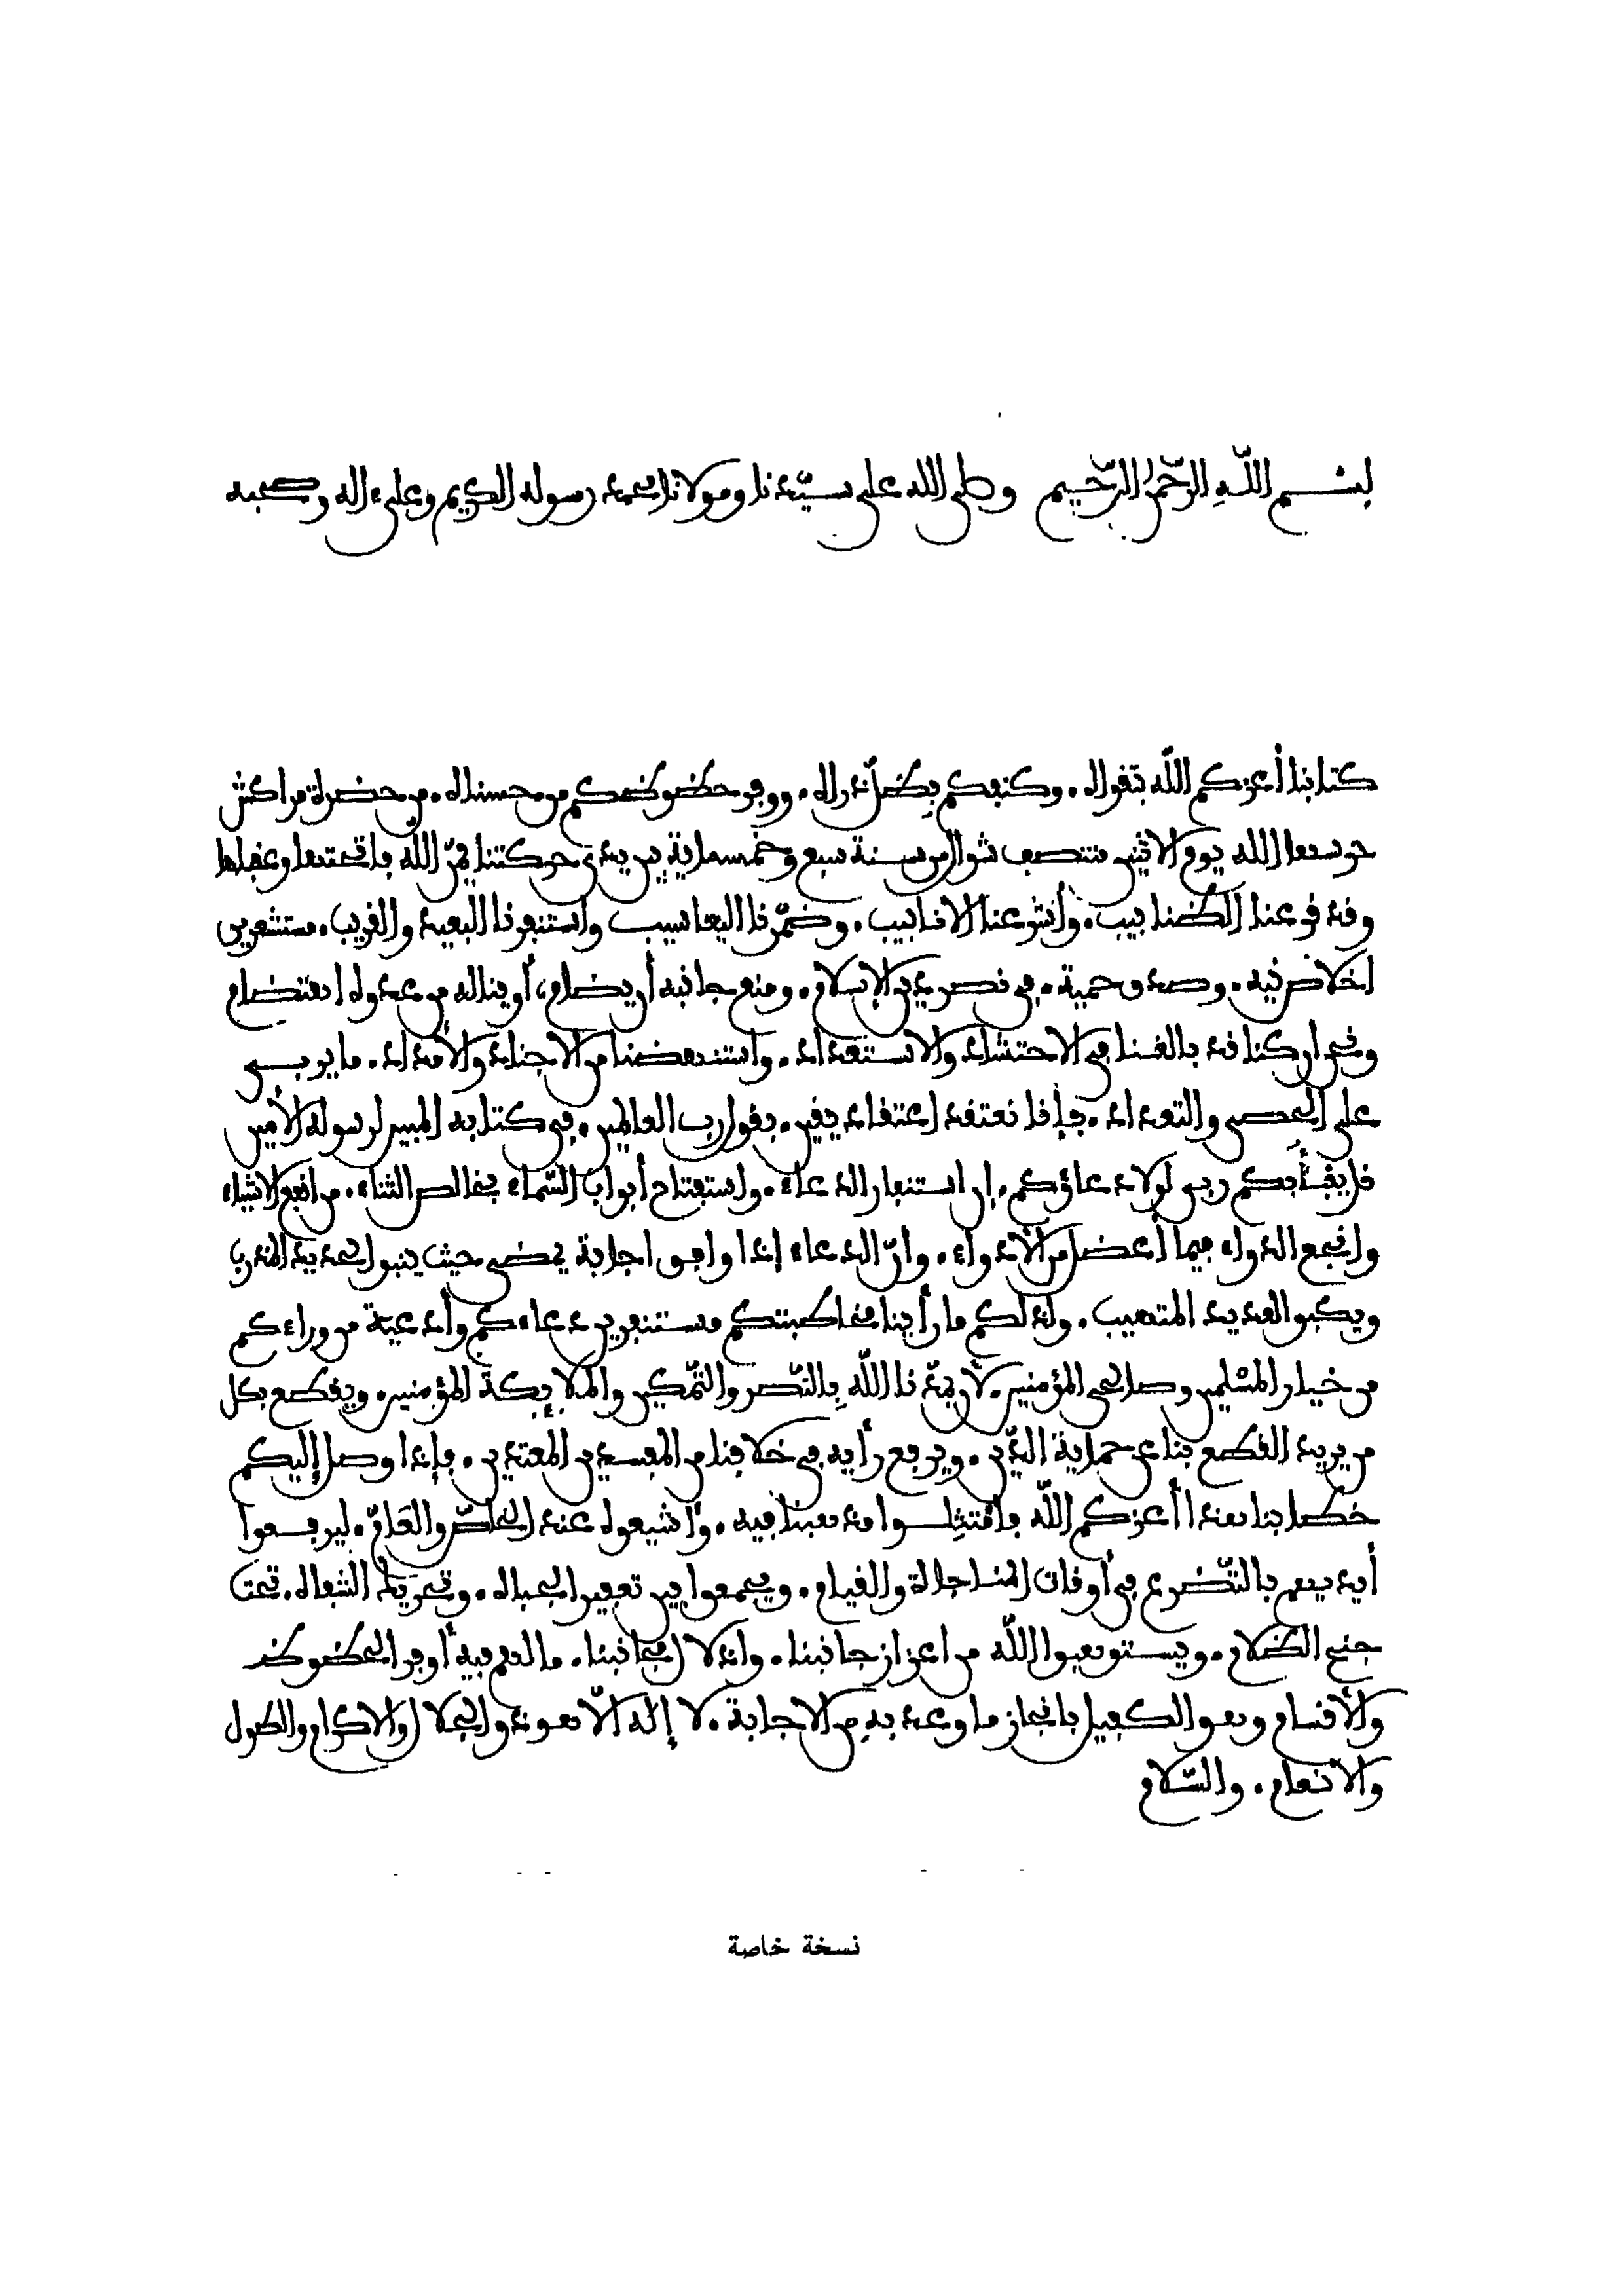 بسم اللّه الرّحمن الرّحيم وصلى الله على سيّدنا ومولانا محمد رسوله الكريم وعلى ءاله وصحبه
كتابنا أعزكم اللّه بتقواه . وكنفكم بظل ذراه . ووفر حظوظكم من حسناه . من حضرة مراكش
حرسها الله يوم الاثنين منتصف شوال من سنة سبع وخمسماية بين يدى حركتنا يمّن اللّه فاتحتها وعقباها
وقد قرعنا الظنابيب . وأشرعنا الانابيب . وضمّرنا اليعاسيب واستنفرنا البعيد والقريب . مستشعرين
اخلاص نيه . وصدق حمية . في نصر دين الإسلام . ومنع جانبه أن يضام ، أو يناله من عدوه اهتضام
ونحن ان كنا قد بالغنا في الاحتشاد والاستعداد . واستنهضنا من الاجناد والأمداد . ما يربى
على الحصى والتعداد . فإنا نعتقد اعتقاد يقين . بقول رب العالمين . في كتابه المبين لرسوله الأمين
قل ما يعبأ بكم ربي لولا دعاؤكم . ان استنفار الدعاء . واستفتاح أبواب السّماء بخالص الثناء . من انفع الاشياء
وانجع الدواء فيما أعضل من الأدواء . وانّ الدعاء إذا وافق اجابة يمضى حيث ينبو الحديد المذرب
ويكبو العديد المتهيب . ولذلكم ما رأينا مخاطبتكم مستنفرين دعاءكم وأدعية من وراءكم
من خيار المسلمين وصالحى المؤمنين . لأن يمدّنا اللّه بالنّصر والتّمكين والملايكة المؤمنين . ويقطع بكل
من يريد القطع بنا عن حماية الدّين . ويرفع رأيه في خلافنا من المفسدين المعتدين . فإذا وصل إليكم
خطابنا هذا أعزكم اللّه فامتثلوا مذهبنا فيه . وأشيعوه عند الخاصّ والعامّ . ليرفعوا
أيديهم بالتّضرع في أوقات المناجاة والقيام . ويجمعوا بين تعفير الجباه . وتحريك الشفاه . تحت
جنح الظلام . ويستوهبوا اللّه من اعزاز جانبنا . واذلال مجانبنا . ما لهم فيه أوفر الحظوظ
والأقسام وهو الكفيل بانجاز ما وعد به من الاجابة . لا إله الّا هو ذو الجلال والاكرام والطول
والانعام . والسّلام
نسخة خاصة